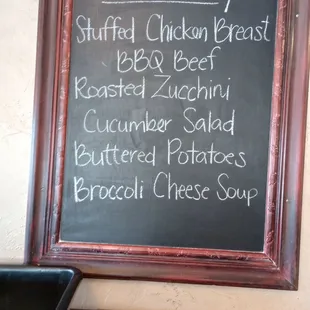 Stuffed Chicken Breast
BBQ Beef
Roasted Zucchini
Cucumber Salad
Buttered Potatoes
Broccoli Cheese Soup